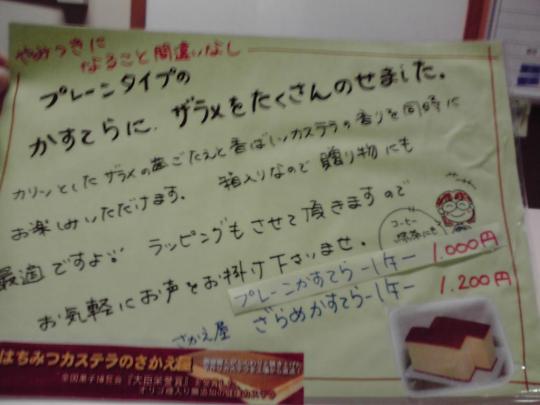 やみつきに
なること間違いなし
プレーンタイプの
かすてらに、ザラメをたくさんのせました。
カリンとしたザラメの歯ごたえと香ばしいカステラの香りを同時に
お楽しみいただけます。箱入りなので贈り物にも
最適ですよ!!ラッピングもさせて頂きますので
お気軽にお声をお掛け下さいませ。
コーヒー
プレーンかすてらー1ケー 1.000円
さかえ屋 ざらめかすてらー1ケー 1.200円
はちみつカステラのさかえ屋
全国菓子博覧会『大臣栄誉賞』を受賞した